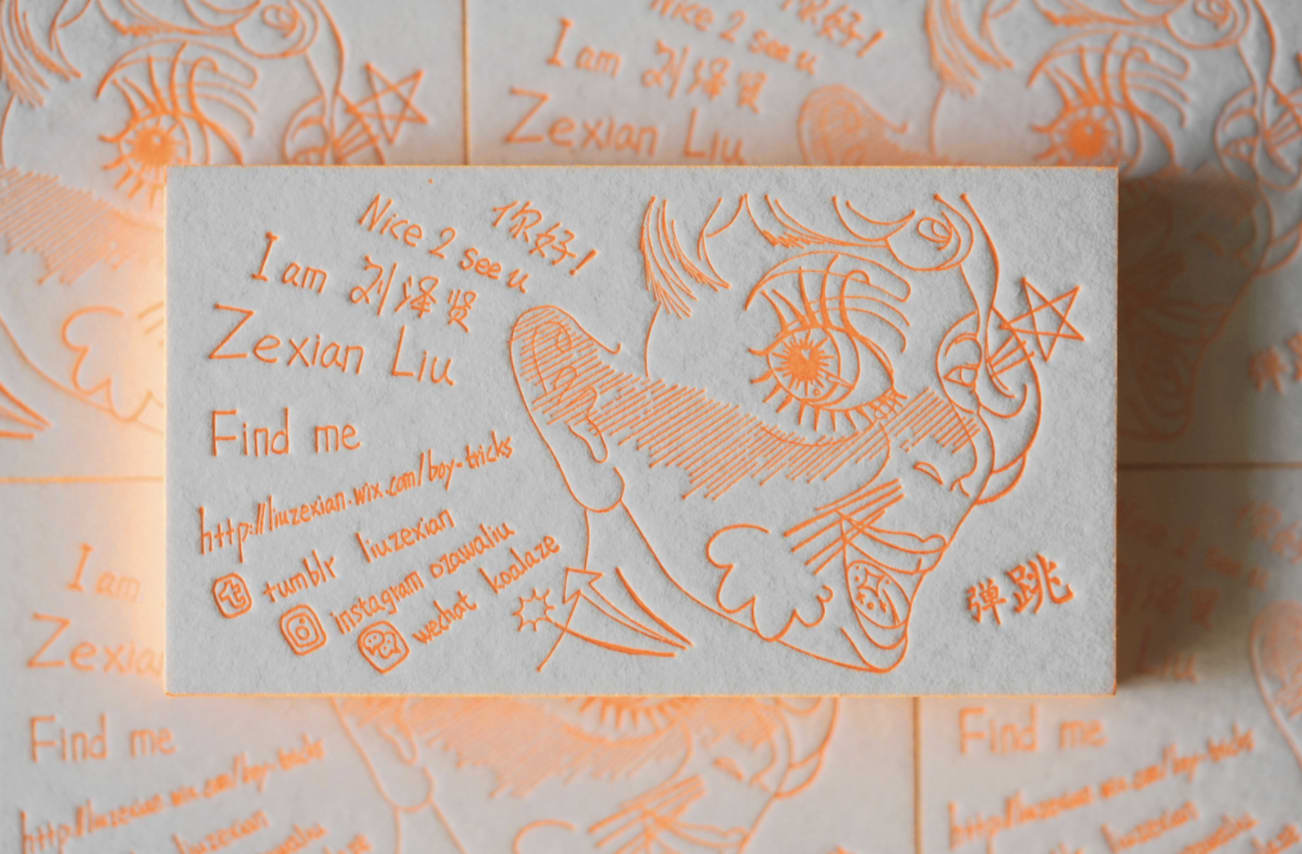 你好!
Nice 2 see u
I am 刘泽贤
Zexian Liu
Find me
http://liuzexian.wix.com/boy-tricks
tumblr liuzexian
instagram ozawaliu
wechat koalaze
弹跳
Nice 2 see u
你好!
I am 刘泽贤
Zexian Liu
I am
Find me
http://liuzexian.wix.com/boy-tricks
liuzexian
Find me
http://liuzexian.wix.com/boy-tricks
liuzexian